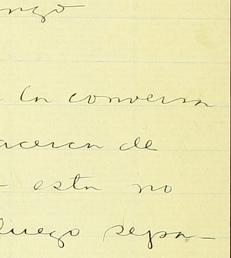 ngo
a la conversa
acerca de
esta no
luego sepa-